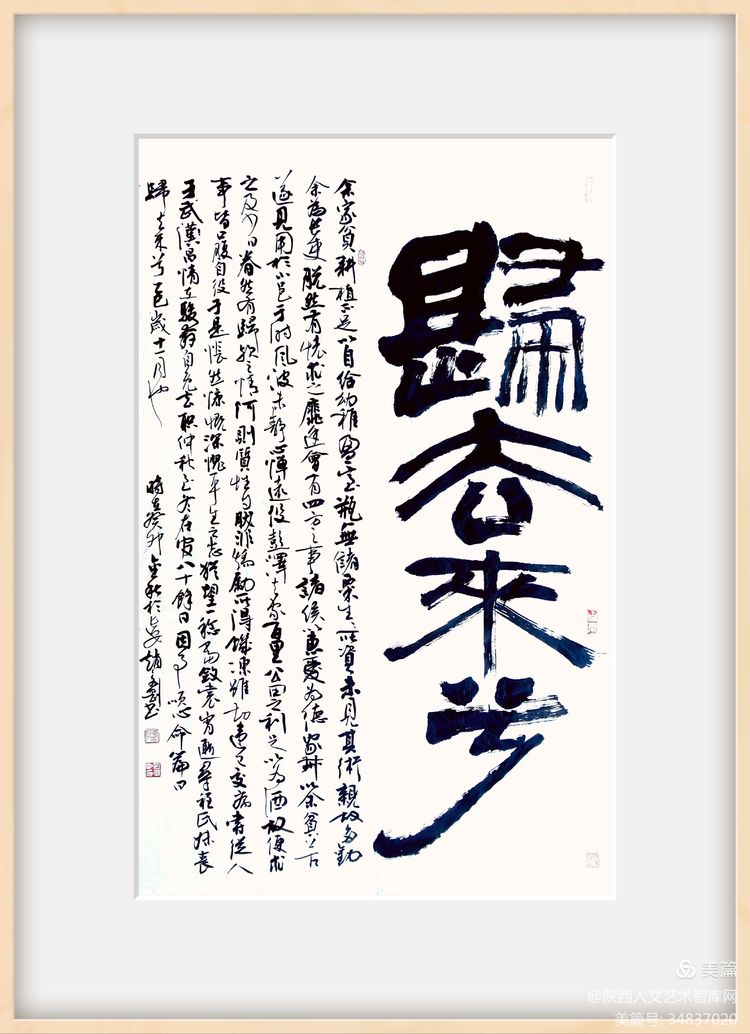 歸去來兮
余家貧耕植不足以自給幼稚盈室瓶無儲粟生生所資未見其術親故多勸
余為長吏脫然有懷求之靡途會有四方之事諸侯以惠愛為德家叔以余貧苦
遂見用於小邑于時風波未靜心憚遠役彭澤去家百里公田之利足以為酒故便求
之及少日眷然有歸歟之情何則質性自然非矯勵所得饑凍雖切違己交病嘗從人
事皆口腹自役于是悵然慷慨深愧平生之志猶望一稔當斂裳宵逝尋程氏妹喪
于武漢昌情在駿奔自免去職仲秋至冬在官八十餘日因事順心命篇曰
歸去來兮乙巳歲十一月也
時在癸卯金秋於長安趙
美篇
@陕西人文艺术智库网
美篇号: 34837020